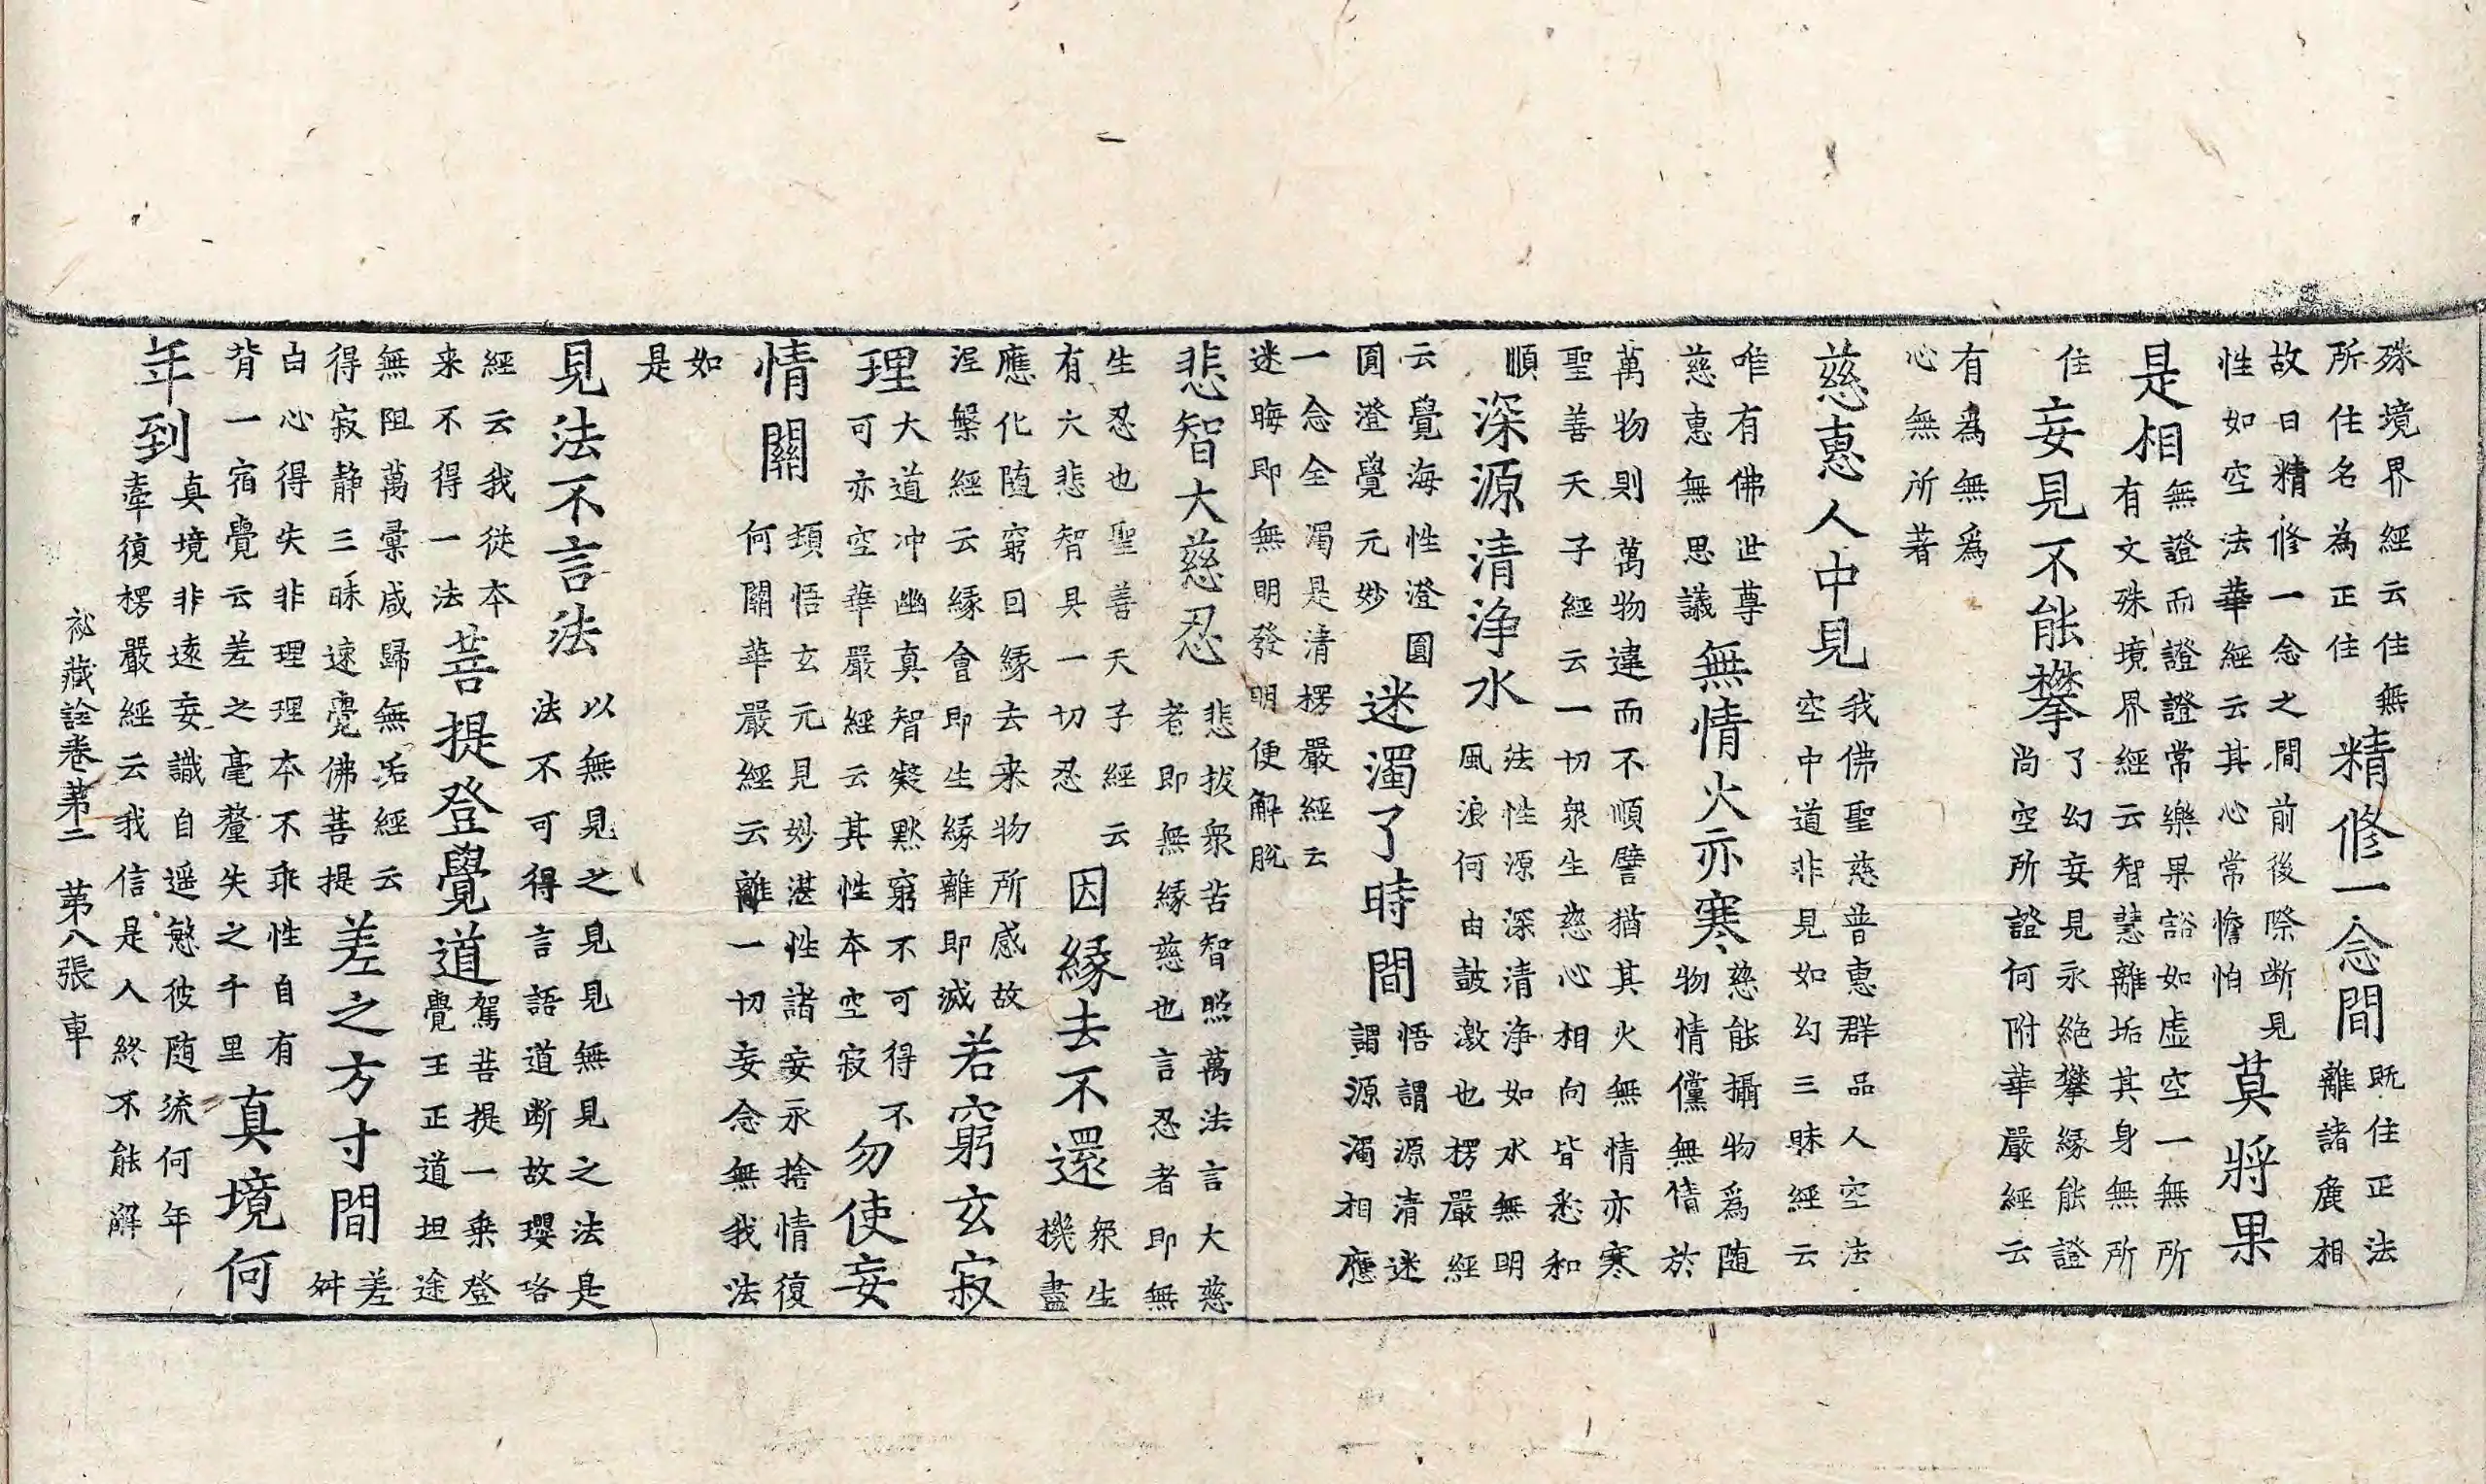 殊境界經云住無所住名為正住精修一念間既住正法離諸麁相
故曰精修一念之間前後際断見性如空法華經云其心常憺怕莫將果
是相無證而證證常樂果谿如虚空一無所有文殊境界經云智慧離垢其身無所
住妄見不能攀了幻妄見永絶攀縁能證尚空所證何附華嚴經云
有為無爲心無所著
慈惠人中見我佛聖慈普惠群品人空法空中道非見如幻三昧經云
唯有佛世尊慈惠無思議無情火亦寒慈能攝物爲随物情儻無情於
萬物則萬物違而不順譬猶其火無情亦寒聖善天子經云一切衆生慈心相向皆悉和
順深源清浄水法性源深清浄如水無明風浪何由鼓激也楞嚴經
云覺海性澄圓圓澄覺元妙迷濁了時間悟謂源清迷謂源濁相應
一念全濁是清楞嚴經云迷晦即無明發明便解脫
悲智大慈忍悲拔衆苦智照萬法言大慈者即無縁慈也言忍者即無
生忍也聖善天子經云有六悲智具一切忍因縁去不還衆生機盡
應化随窮曰縁去来物所感故涅槃經云縁會即生縁離即滅若窮玄寂
理大道冲幽真智凝黙窮不可得不可亦空華嚴經云其性本空寂勿使妄
情關頓悟玄元見妙湛性諸妄永捨情復何關華嚴經云離一切妄念無我法
如是
見法不言法以無見之見見無見之法是法不可得言語道断故瓔珞
經云我従本来不得一法菩提登覺道駕菩提一乗登覺王正道坦途
無阻萬彙咸歸無垢經云得寂静三昧速覺佛菩提差之方寸間差舛
白心得失非理理本不乖性自有背一宿覺云差之毫釐失之千里真境何
年到真境非遠妄識自遥慾彼随流何年牽復楞嚴經云我信是人終不能解
祕蔵詮卷苐二　苐八張　車